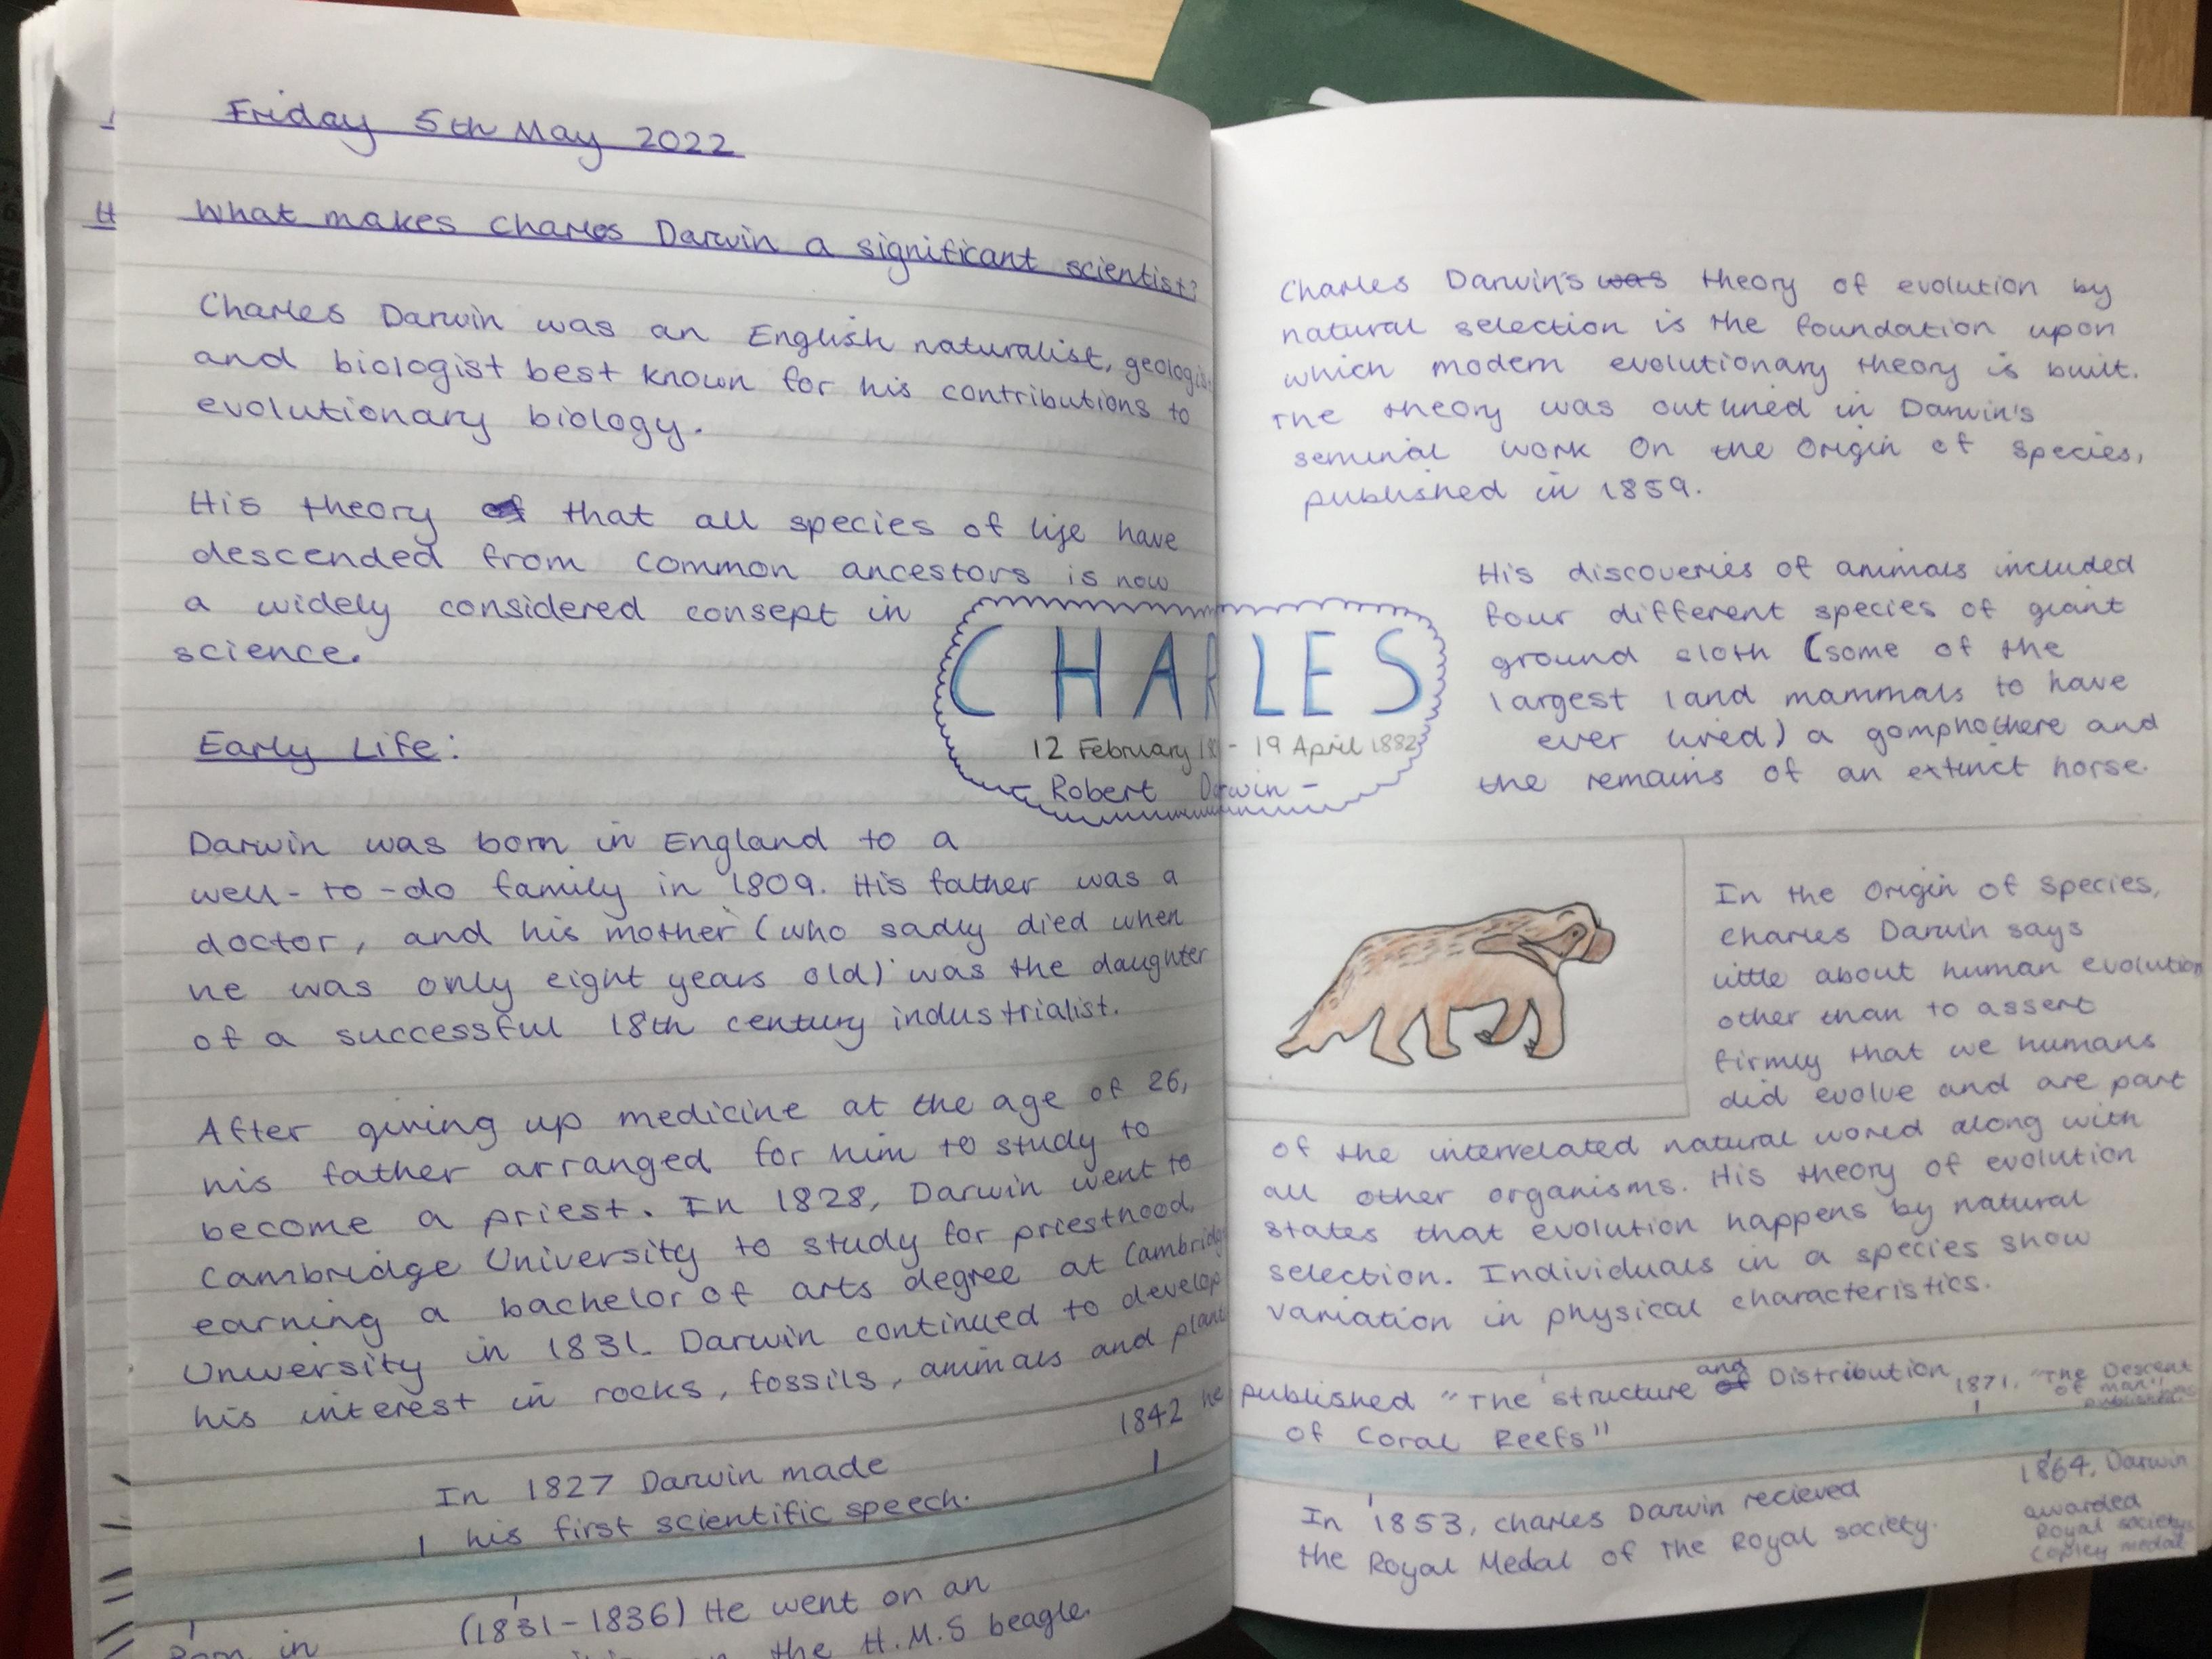 Friday 5th May 2022
What makes Charles Darwin a significant scientist?
Charles Darwin was an English naturalist,
and biologist best known for his contributions to
evolutionary biology.
His theory that all species of life have
descended from common ancestors is now
a widely considered consept in
science.
CHARLES
12 February - 19 April 1882
Robert Darwin -
Early Life:
Darwin was born in England to a
well-to-do family in 1809. His father was a
doctor, and his mother (who sadly died when
he was only eight years old) was the daughter
of a successful 18th century industrialist.
After giving up medicine at the age of 26,
his father arranged for him to study to
become a priest. In 1828, Darwin went to
Cambridge University to study for priesthood,
earning a bachelor of arts degree at Cambridge
University in 1831. Darwin continued to develop
his interest in rocks, fossils, animals and
In 1827 Darwin made
his first scientific speech.
(1831-1836) He went on an
the H.M.S beagle.
Born in
Charles Darwin's was theory of evolution by
natural selection is the foundation upon
which modern evolutionary theory is built.
The theory was outlined in Darwin's
seminal work On the Origin of Species,
published in 1859.
His discoveries of animals included
four different species of giant
ground sloth (some of the
largest land mammals to have
ever lived) a gomphothere and
the remains of an extinct horse.
In the Origin of Species,
Charles Darwin says
little about human evolution
other than to assert
firmly that we humans
did evolve and are part
of the interrelated natural world along with
all other organisms. His theory of evolution
states that evolution happens by natural
selection. Individuals in a species show
variation in physical characteristics.
1842 he published "The structure and Distribution
of Coral Reefs"
1871, "The Descent
of man" was
published
In 1853, Charles Darwin recieved
the Royal Medal of The Royal society.
1864, Darwin
awarded
Royal society
Copley medal